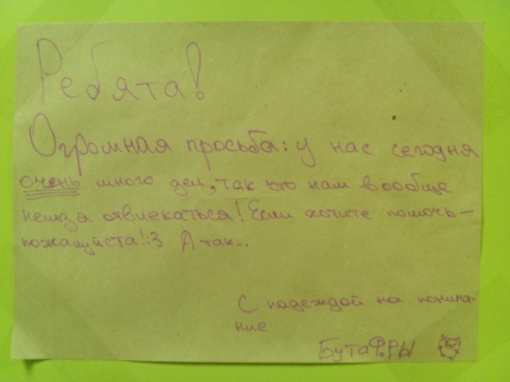 Ребята!
Огромная просьба: у нас сегодня
очень много дел, так что нам вообще
нельзя отвлекаться! Если хотите помочь –
пожалуйста! :3 А так..
С надеждой на понима-
ние
БутаФ.РЫ